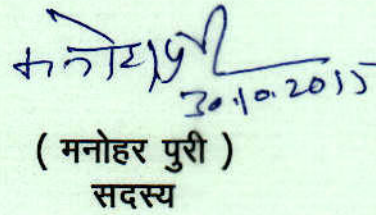 मनोहर पुरी
30.10.2015
( मनोहर पुरी )
सदस्य